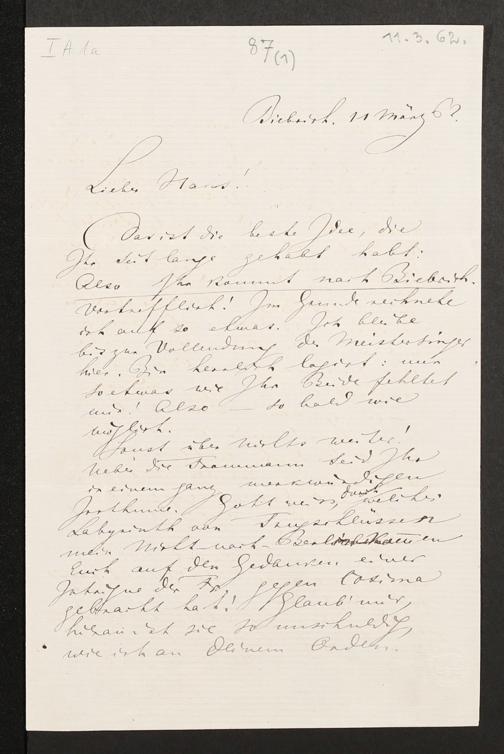 I A 1a
87(1)
11.3.62.
Biebrich. 11 März 62.
Lieber Hans!
Das ist die beste Idee, die
Ihr seit lange gehabt habt:
Also Ihr kommt nach Biebrich.
Vortrefflich! Im Grunde rechnete
ich auf so etwas. Ich bleibe
bis zur Vollendung der Meistersinger
hier. Bin herrlich logirt: nur
so etwas wie Ihr Beide fehltet
mir! Also — so bald wie
möglich.
Sonst über nichts weiter!
Ueber die Frommann seid Ihr
in einem ganz merkwürdigen
Irrthume. Gott weiss, durch welches
Labyrinth von Trugschlüssen
mein Nicht-nach-Berlin-Kommen
Euch auf den Gedanken einer
Intrigue der Fr. gegen Cosima
gebracht hat! Glaub' mir,
hieran ist sie so unschuldig,
wie ich an Deinem Orden.